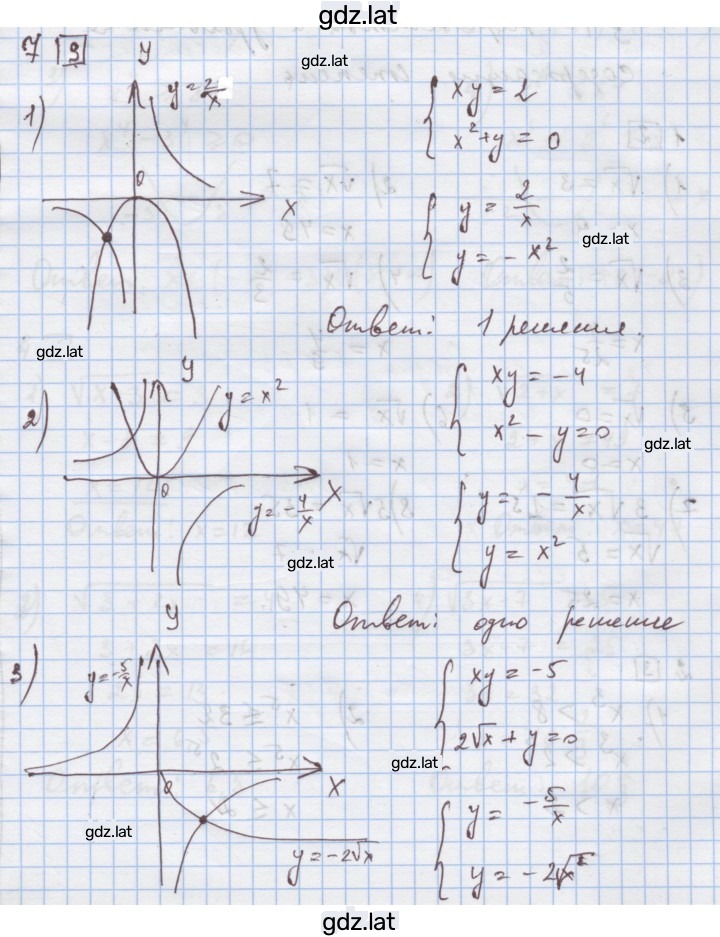 gdz.lat
7 [3]
gdz.lat
1)
y
y = 2/x
0
x
{ xy = 2
x² + y = 0
{ y = 2/x
y = - x²
gdz.lat
Ответ: 1 решение.
gdz.lat
2)
y
y = x²
0
x
y = -4/x
{ xy = -4
x² - y = 0
gdz.lat
{ y = - 4/x
y = x²
gdz.lat
Ответ: одно решение
3)
y
y = -5/x
0
x
y = -2√x
{ xy = -5
2√x + y = 0
gdz.lat
{ y = -5/x
y = -2√x
gdz.lat
gdz.lat